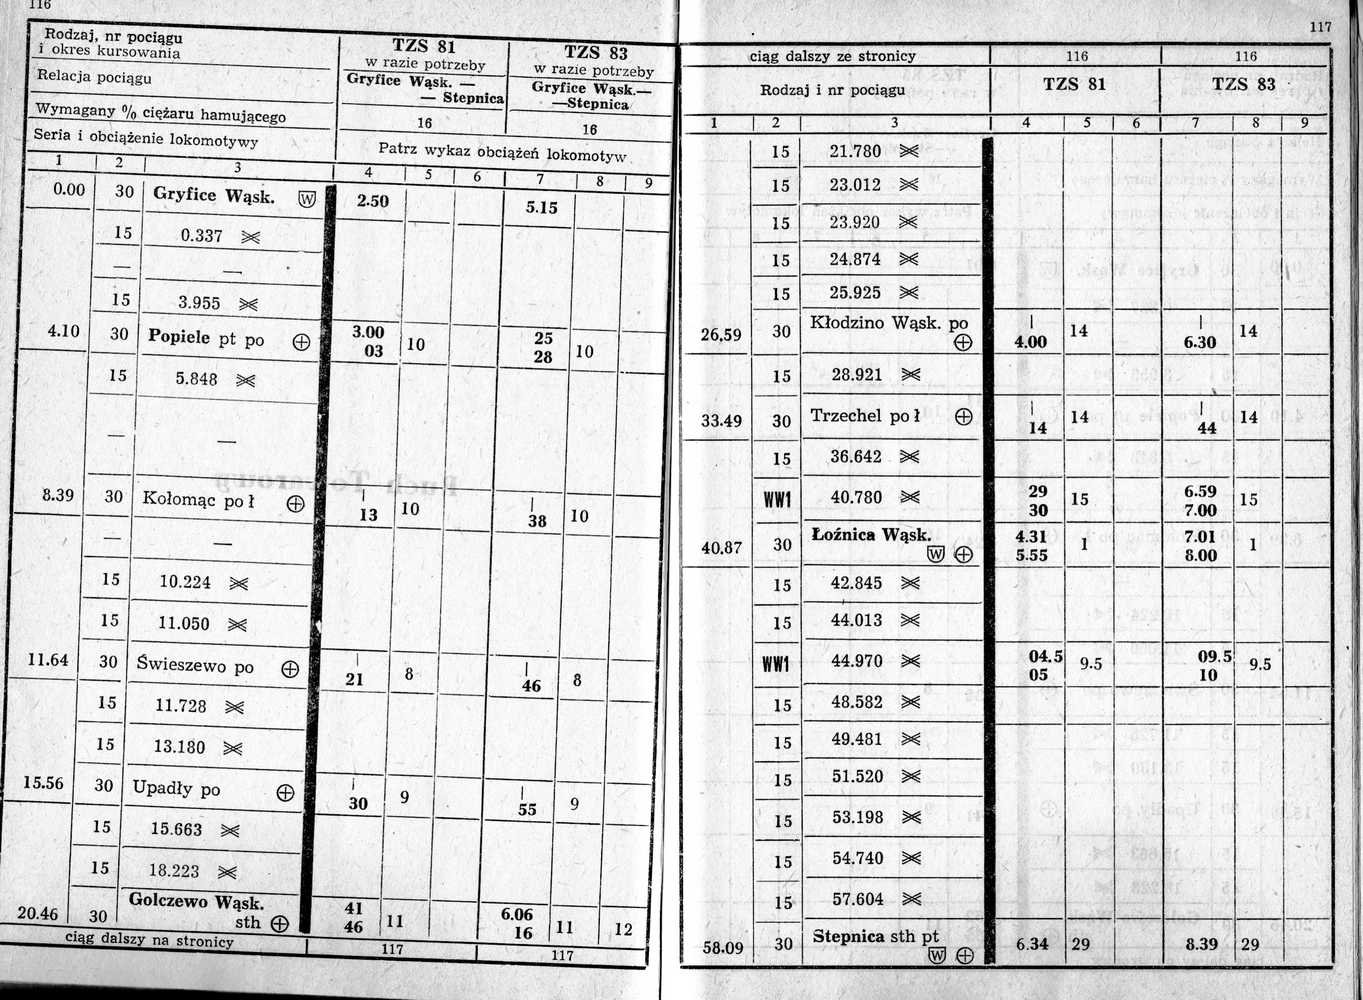 116
Rodzaj, nr pociągu
i okres kursowania
TZS 81
w razie potrzeby
TZS 83
w razie potrzeby
Relacja pociągu
Gryfice Wąsk. —
— Stepnica
Gryfice Wąsk.—
—Stepnica
Wymagany % ciężaru hamującego
16
16
Seria i obciążenie lokomotywy
Patrz wykaz obciążeń lokomotyw
1 2 3 4 5 6 7 8 9
0.00 30 Gryfice Wąsk. W 2.50 5.15
15 0.337
— —
15 3.955
4.10 30 Popiele pt po 3.00 10 25 10
03 28
15 5.848
— —
8.39 30 Kołomąc po ł | 10 | 10
13 38
— —
15 10.224
15 11.050
11.64 30 Świeszewo po | 8 | 8
21 46
15 11.728
15 13.180
15.56 30 Upadły po | 9 | 9
30 55
15 15.663
15 18.223
Golczewo Wąsk. 41 6.06
20.46 30 sth 46 11 16 11 12
ciąg dalszy na stronicy 117 117
117
ciąg dalszy ze stronicy 116 116
Rodzaj i nr pociągu TZS 81 TZS 83
1 2 3 4 5 6 7 8 9
15 21.780
15 23.012
15 23.920
15 24.874
15 25.925
26.59 30 Kłodzino Wąsk. po | 14 | 14
4.00 6.30
15 28.921
33.49 30 Trzechel po ł | 14 | 14
14 44
15 36.642
WW1 40.780 29 15 6.59 15
30 7.00
40.87 30 Łoźnica Wąsk. 4.31 1 7.01 1
W 5.55 8.00
15 42.845
15 44.013
WW1 44.970 04.5 9.5 09.5 9.5
05 10
15 48.582
15 49.481
15 51.520
15 53.198
15 54.740
15 57.604
58.09 30 Stepnica sth pt 6.34 29 8.39 29
W